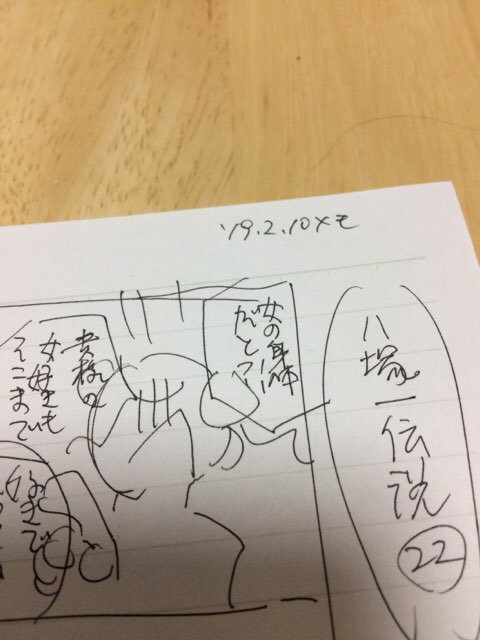 '19.2.10メモ
八塚一伝説
22
女の身体
だと?
貴様の
女好きも
そこまで